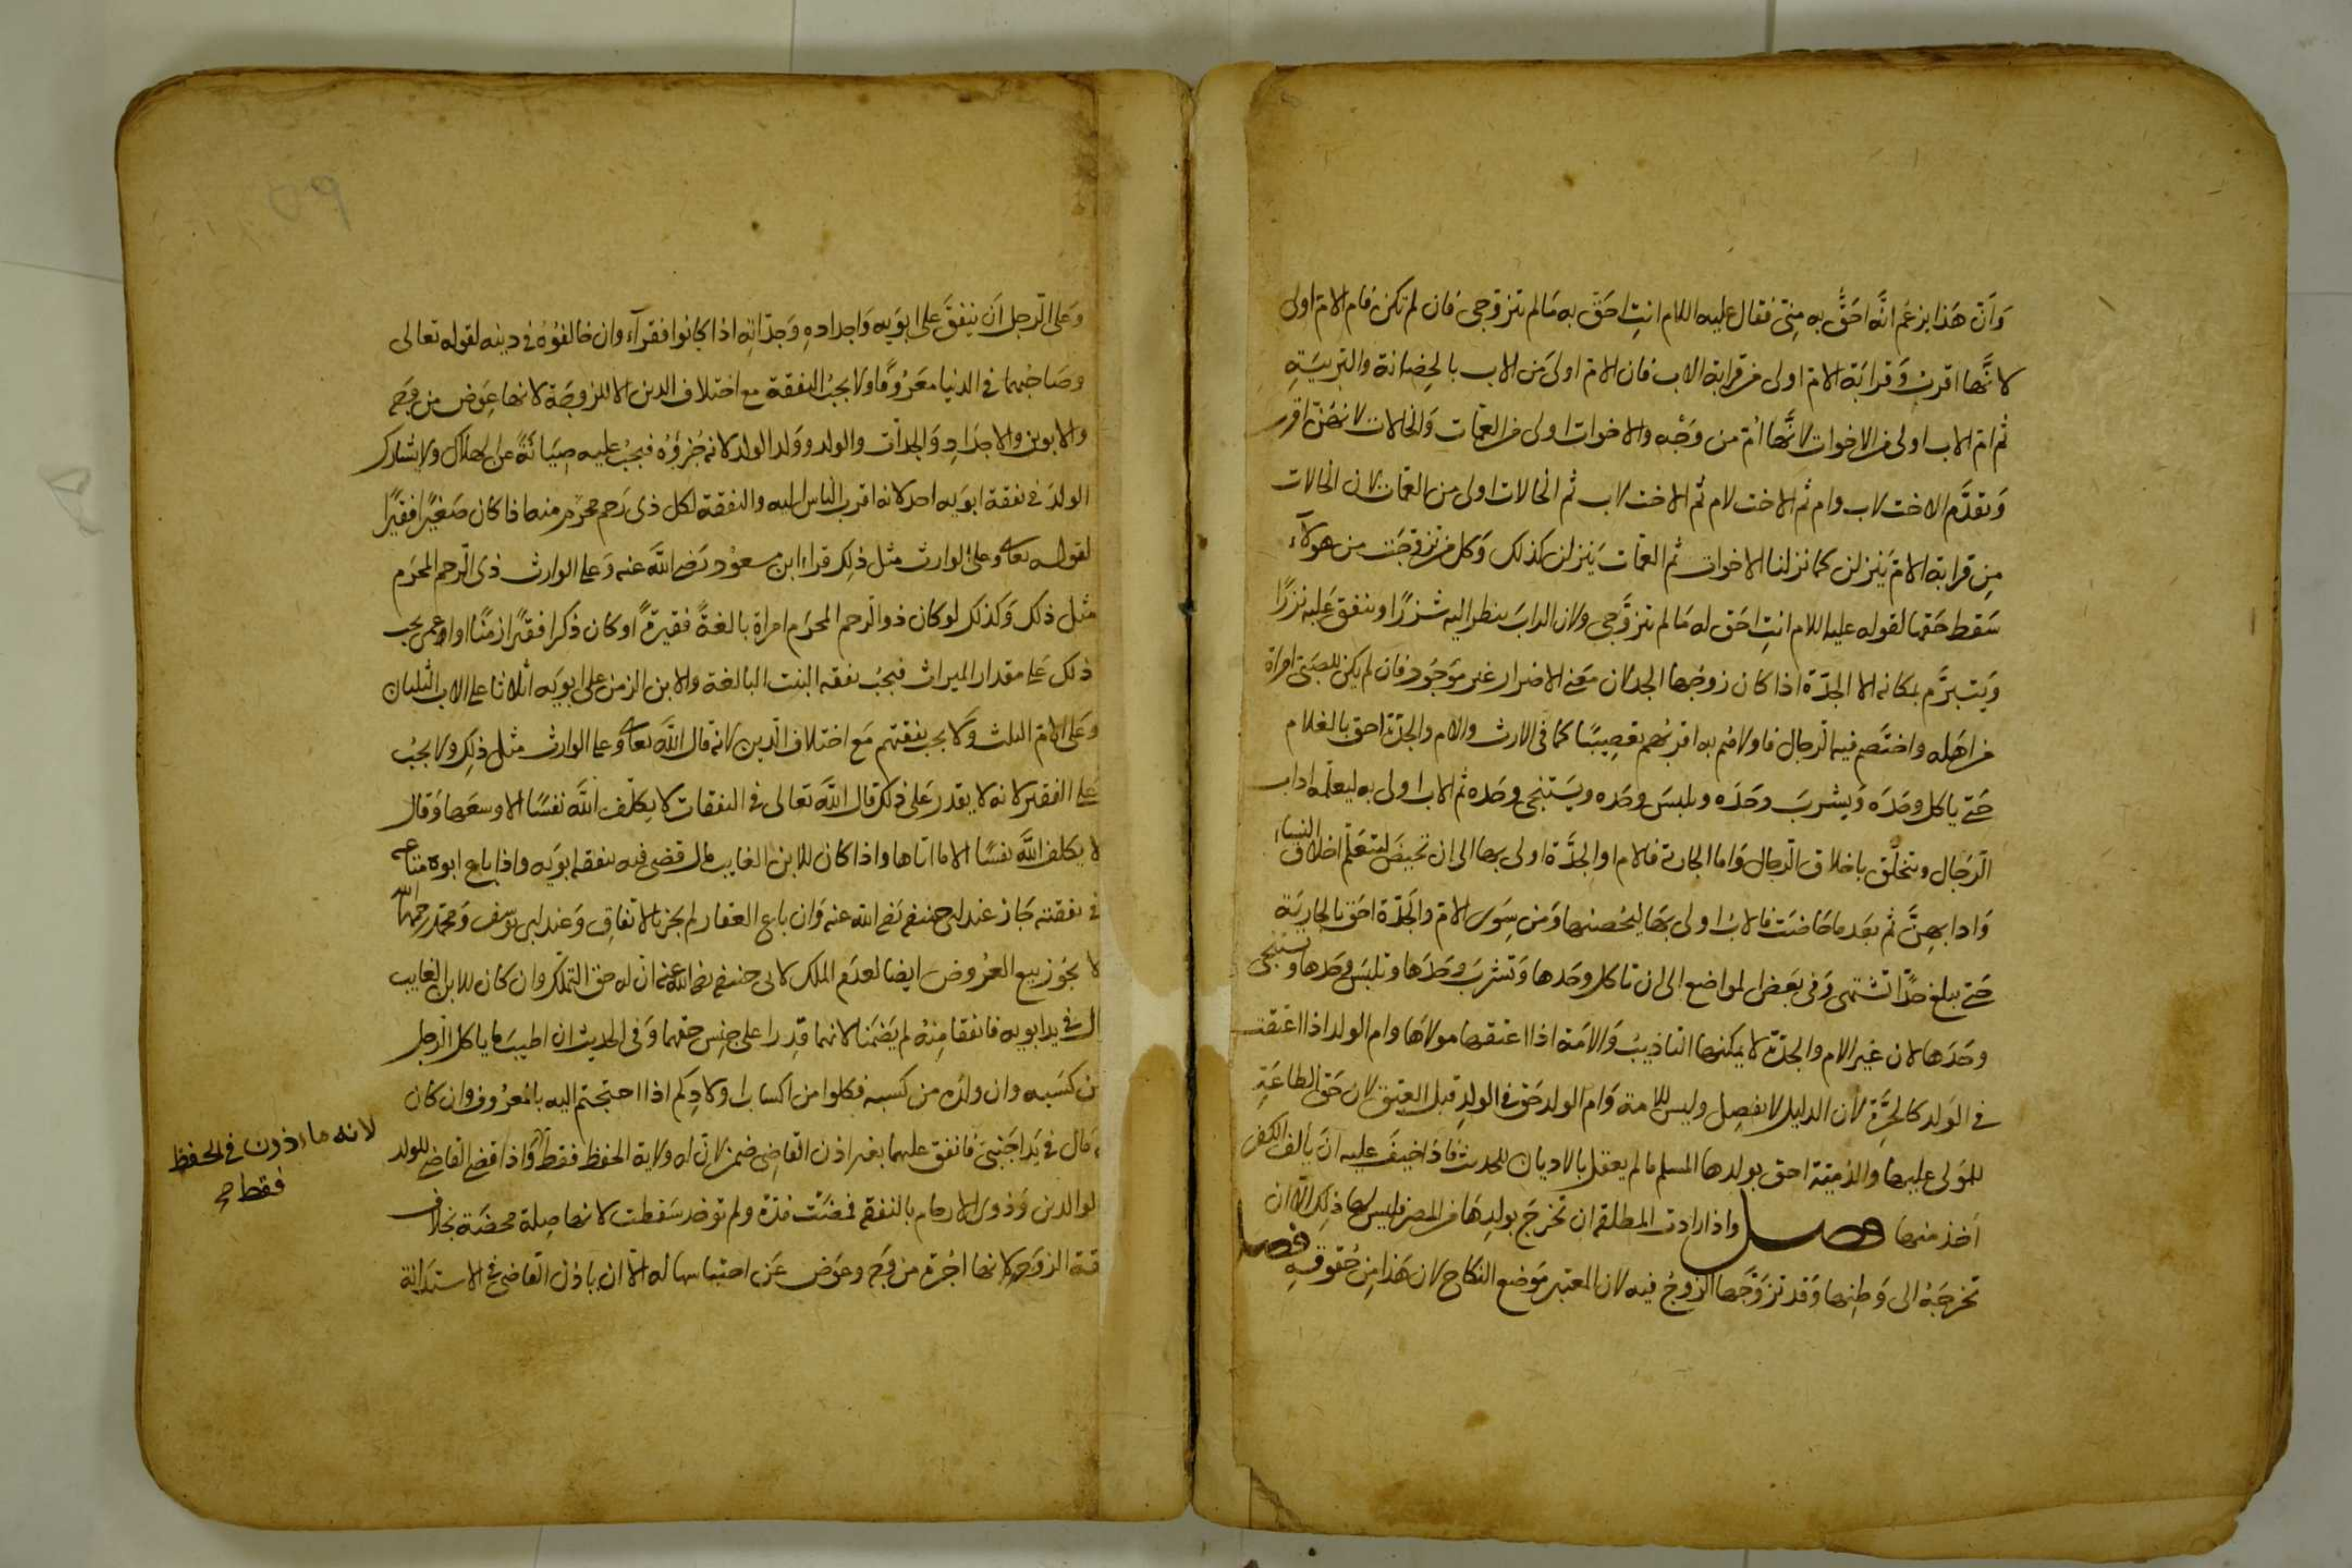 وَاَنّ هَذا يزعَم انَّه احَقُّ به مِنّي فقال عليه السلام انتِ احَقّ به مَا لم تتزوّجى فان لم تكن فام الام اولى
لانَّها اقربُ وَقرابَة الام اولى من قرابة الاب فان الامّ اولىَ من الاب بالحِضانة والتربيَة
ثم امّ الاب اولى من الاخوات لانَّها اُمّ من وَجْه والاخوات اولى من العمّات وَالخالات لانهنّ اقرب
وَتقدّم الاخت لاب وام ثم الاخت لام ثم الاخت لاب ثم الخالات اولى من العمّات لان الخالات
مِن قرابة الامّ يَنزلن كما نزلنا الاخوات ثم العمّات يَنزلن كذلك وَكل من تزوّجَت من هولآء
سَقط حَقها لقوله عليه السلام انتِ احَق له مَا لم تتزوَّجى ولان الرابّ ينظر اليه شزرًا وينفق عَليه نزرًا
وَيتبرَّم بمكانه الا الجدّة اذا كان زوجُها الجد لان مَعنى الاضرار غير مَوجُود فان لم يكن للصبّى امراة
من اهله واختصَم فيه الرجال فاولاهم به اقربهم تعصِيبًا كما فى الارث والام والجدّة احق بالغلام
حَتى ياكل وحَدَه وَيشربَ وحَدَه ويلبسَ وحَده ويَستنجى وحَده ثم الاب اولى به ليعلّمه اداب
الرّجال ويتخلّق باخلاق الرّجال وَاما الجارية فالام او الجدَّة اولى بها الى ان تحيضَ لتتعَلّم اخلاق النساء
وَادابهنَّ ثم بَعد ما حَاضَت فالابُ اولى بهَا ليحُصنها وَمن سِوى الامّ والجَدّة احَق بالجاريَة
حَتى تبلغ حدًّا تشتهى وَفى بَعض المواضع الى ان تاكل وحَدها وَتشربَ وَحدَها وتلبسَ وَحدَها وتستنجى
وحَدَها لان غير الام والجدّة لا يمكنها التاديبُ وَالامَة اذا اعتقها مولاهَا وام الولد اذا اعتقت
فى الوَلد كالحرّة لان الدليل لا يفصِل وليس للامة وَام الولد حَق فى الولدِ قبل العتق لان حَق الطاعَة
للمَولى عليها والذميّة احق بولدها المسلم ما لم يعقل بالاديان للحديث فاذا خيفَ عليه انَ يألف الكفر
اخذ منها فصل واذا ارادت المطلقة ان تخرجَ بولدِهَا من المصر فليس لها ذلِك الّا ان
تخرجَهُ الى وَطنِها وَقد تزوَّجَها الزوجُ فيه لان المعتبر مَوضع النكاح لان هَذا مِن حُقوقهِ فصل
٥٩
وعَلى الرّجل اَن ينفقَ عَلى ابوَيه وَاجدادهِ وَجدّاتهِ اذا كانوا فقرآء وان خالفوُه فى دينه لقوله تعالى
وصَاحبهما فى الدنيا مَعرُوفًا ولا يجبُ النفقة مع اختلاف الدين الا للزوجَة لانها عِوَض من وجَه
والابوين والاجدادِ وَالجدّات والولد ووَلد الولد لانه جُزؤُه فيجبُ عليه صِيَانَةً عن الهلاك ولا يشارك
الولدَ فى نفقة ابوَيه احد لانه اقرب الناس اليه والنفقة لكل ذى رَحم محرَم منه اذا كان صَغيرًا فقيرًا
لقوله تعالى وعلى الوارث مثل ذلِك قراءة ابن مسعوُد رَضى اللّه عنه وَعلى الوارث ذى الرّحم المحرَم
مثل ذلك وَكذلك لو كان ذو الرّحم المحرَم امراة بالغةً فقيرةً او كان ذكرا فقيرًا زمنًا او اعمى يجب
ذلك عَلى مقدار الميراث فيجبُ نفقة البنت البالغة والابن الزمن على ابويَه اثلاثا على الاب الثلثان
وعَلى الامّ الثلث وَلا يجب نفقتهم مَع اختلاف الدّين لانه قال اللّه تعالى وعلى الوارث مثل ذلِك ولا يجبُ
عَلى الفقير لانه لا يقدر عَلى ذلك قال اللّه تعالى فى النفقات لا يكلّف اللّه نفسًا الا وسعَها وَقال
لا يكلف اللّه نفسًا الا ما اتاها واذا كان للابن الغايب مال قضى فيه بنفقة ابوَيه واذا باع ابوه متاعه
فى نفقته جَاز عند ابى حنيفة رَضى اللّه عنه وَان باع العقار لم يجز بالاتفاق وَعند ابى يوُسف وَمحمّد رحمهما اللّه
لا يجوَز بيع العرُوض ايضا لعدَم الملك لابى حنيفة رضى اللّه عنه انّ له حق التملّك وان كان للابن الغايب
مال فى يد ابويه فانفقا مِنهُ لم يَضمَنا لانهما قدِرا على جنِس حقهما وَفى الحديث ان اطيبَ ما ياكل الرّجل
من كسَبه وان ولدَه من كسَبه فكلوا من اكساب اولادِكم اذا احتجتم اليه بالمعرُوف وان كان
له مَال فى يَد اجَنبىّ فانفق عليهما بغير اذن القاضِى ضمن لانّ له ولاية الحفظ فقط وَاذا قضى القاضى للولد
والوالدين وَذوى الارحام بالنفقة فمضَت مدّة ولم توخذ سَقطت لانها صِلة محضَة بخلاف
نفقة الزوَجة لانها اجُرة من وَجه وعوَض عَن احتباسها له الا ان ياذنَ القاضى فى الاستدَانة
لانه ماءذون فى الحفظ
فقط صح